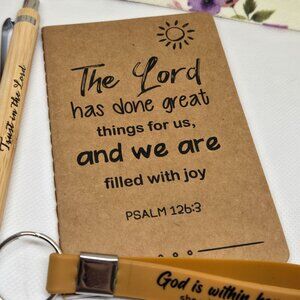 The Lord
has done great
things for us,
and we are
filled with joy
PSALM 126:3
Trust in the Lord
God is within